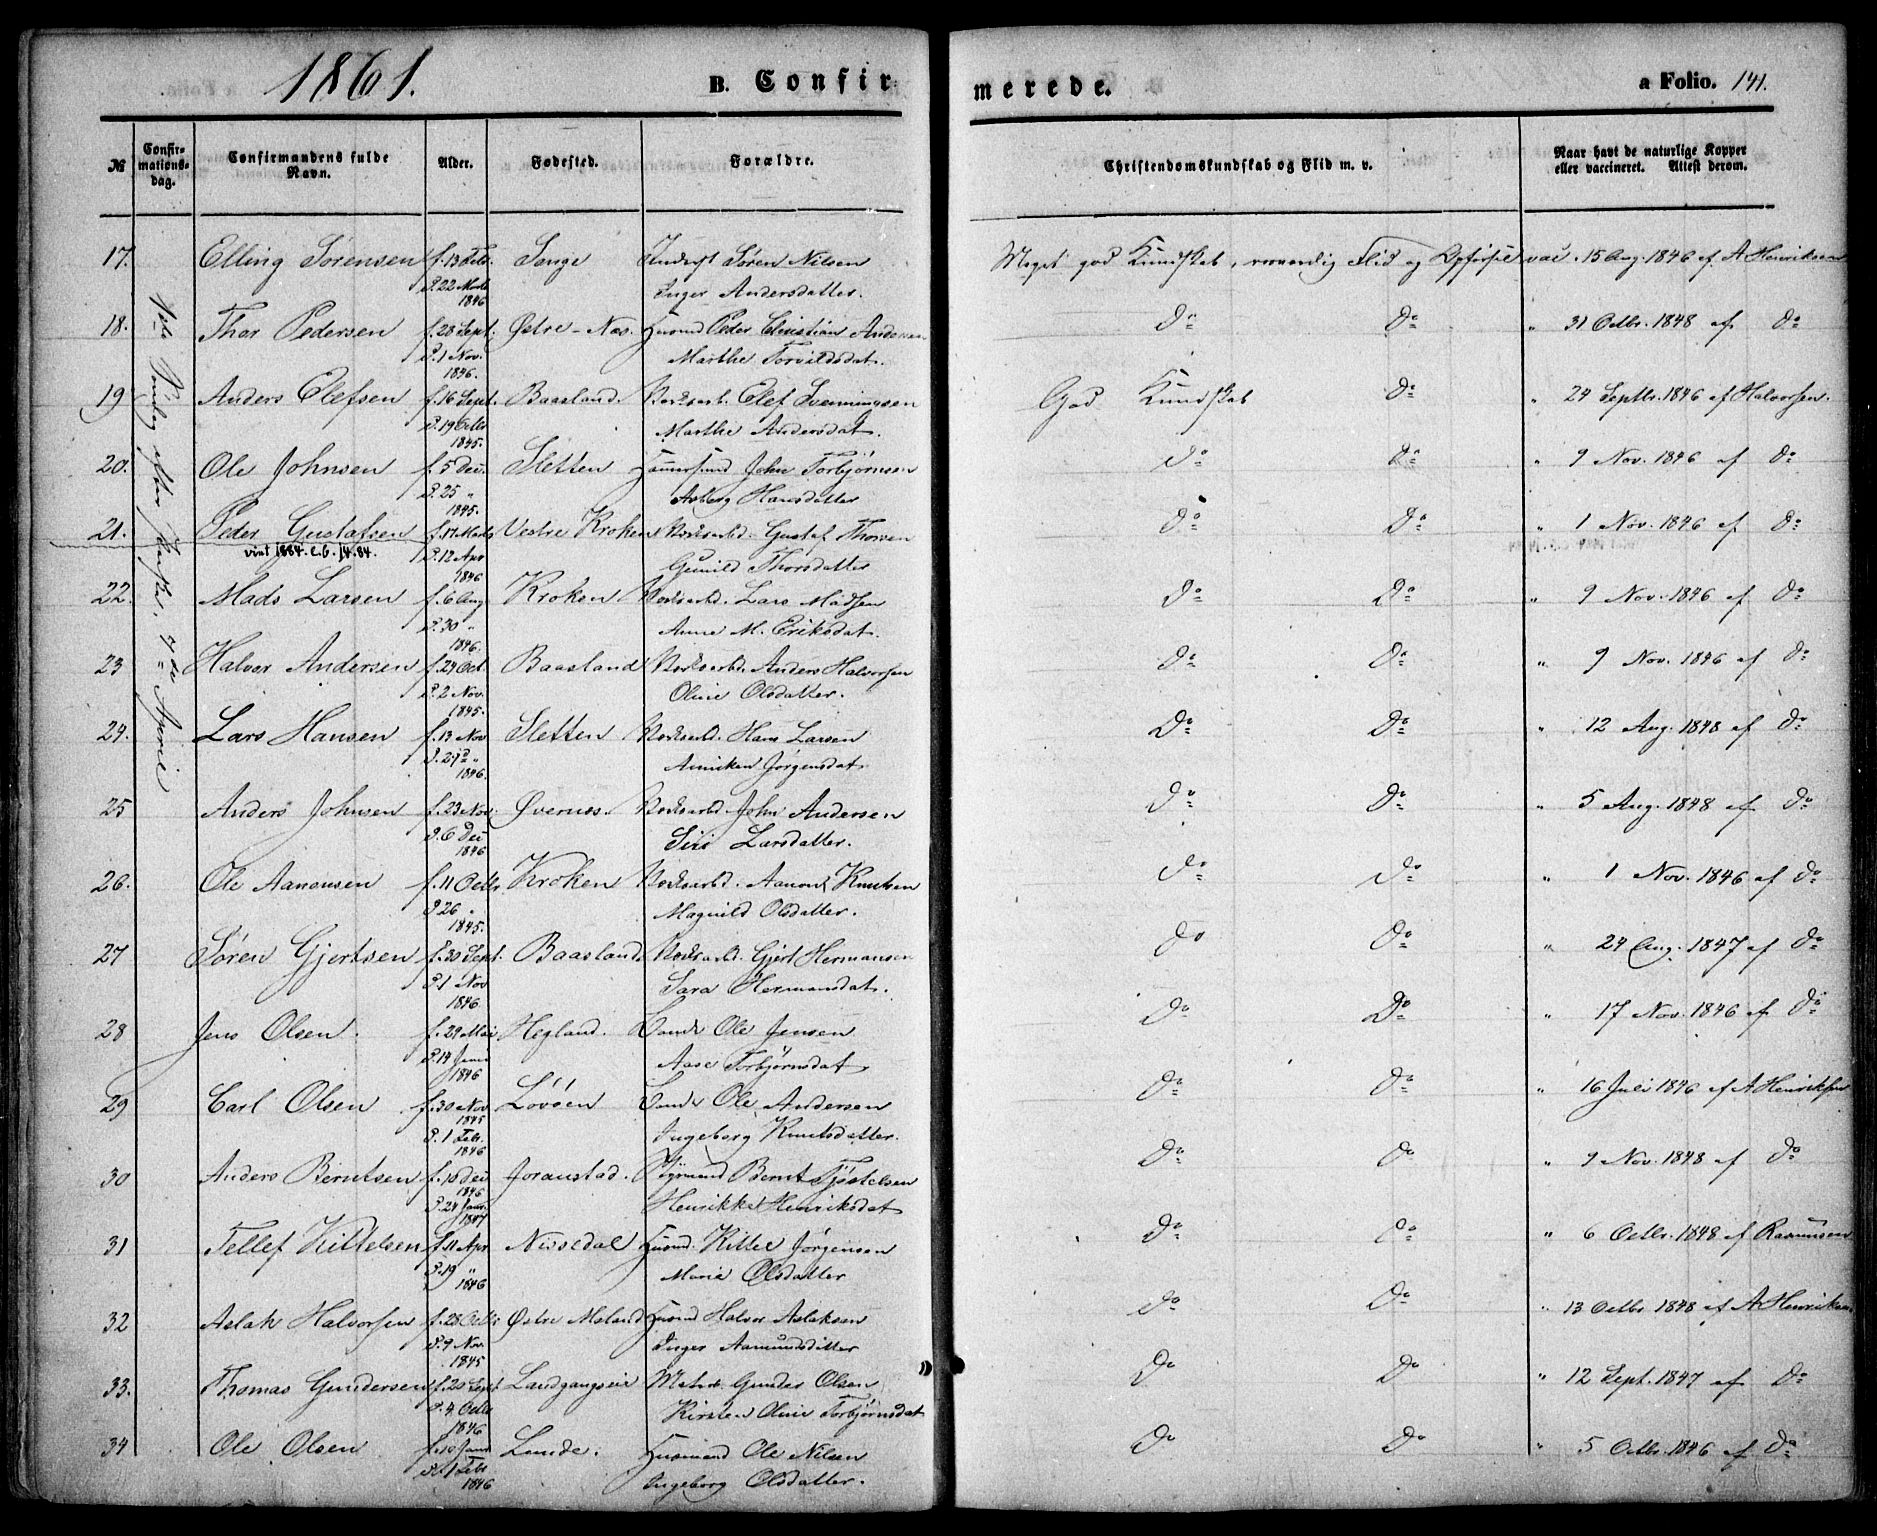 1861.
B. Confirmerede.
a Folio. 141.
№
Confirmationsdag.
Confirmandens fulde Navn.
Alder.
Fødested.
Forældre.
Christendomskundskab og Flid m. v.
Naar havt de naturlige Kopper eller vaccineret. Attest derom.
1ste Søndag efter Paaske, 7de April
17. Elling Sørensen f. 13 Feb. Songe Inderst Søren Nilsen Meget god Kundskab, roværdig Flid og Opførsel vac. 15 Aug. 1846 af A Henriksen
d. 22 Marts 1846 Inger Andersdatter.
18. Thor Pedersen f. 28 Sept. Østre-Næs Husmd Peder Christian Andersen Do Do " 31 Octbr. 1848 af Do
d. 1 Nov. 1846. Marthe Torvildsdat.
19 Anders Olefsen f. 16 Sept. Baasland. Værksarb. Olef Svenningsen God Kundskab Do " 24 Septbr. 1846 af Halvorsen.
d. 19 Octbr 1845. Marthe Andersdat.
20. Ole Johnsen f. 5 Dec. Sletten Hammersmd John Torbjørnsen Do Do " 9 Nov. 1846 af Do
d. 25 " 1845. Asberg Hansdatter
21. Peder Gustafsen f. 17 Marts Vestre Kroken Værksarbd. Gustaf Thorsen Do Do " 1 Nov. 1846 af Do
vint 1884. C.C. 14. 84. d. 12 Apr 1846 Gunild Thorsdatter
22. Mads Larsen f. 6 Aug. Kroken Værksarbd. Lars Madsen Do Do " 9 Nov. 1846 af Do
d. 30 " 1846. Anne M. Eriksdat.
23 Halvor Andersen f. 24 Oct. Baasland Værksarbd. Anders Halvorsen Do Do " 9 Nov. 1846 af Do
d. 2 Nov. 1845. Oline Olsdatter.
24. Lars Hansen f. 13 Nov Sletten Værksarbd. Hans Larsen Do Do " 12 Aug. 1848 af Do
d. 29 " 1846. Anniken Jørgensdat.
25 Anders Johnsen f. 23 Nov. Øvernes. Værksarbd. John Andersen Do Do " 5 Aug. 1848 af Do
d. 6 Dec 1846 Siri Larsdatter.
26. Ole Aanonsen f. 11 Octbr. Kroken Værksarbd. Aanon Knutsen Do Do " 1 Nov. 1846 af Do
d. 26 " 1845. Magnild Olsdatter.
27 Søren Gjertsen f. 30 Sept. Baasland Værksarbd. Gjert Hermansen Do Do " 24 Aug. 1847 af Do
d. 1 Nov 1846 Sara Hermansdat.
28 Jens Olsen. f. 29 Mai Hegland. Ole Jensen Do Do " 17 Nov. 1846 af Do
d. 14 Juni 1846 Aase Torbjørnsdat
29 Carl Olsen f. 30 Nov 1845 Løvsen Ole Andersen Do Do " 16 Juli 1846 af A Henriksen
d. 1 Feb. 1846 Ingeborg Knutsdatter.
30 Anders Berntsen f. 10 Dec 1846 Joranstad. Bernt Tjøstelsen Do Do " 9 Nov. 1848 af Do
d. 24 Janr. 1847 Henrikke Henriksdat
31 Tellef Kittelsen f. 11 Apr Nissedal Husmd. Kittel Jørgensen Do Do " 6 Octbr. 1848 af Rasmussen
d. 19 " 1846 Marie Olsdatter
32 Aslak Halvorsen f. 28 Octbr Østre Moland Husmd Halvor Aslaksen Do Do " 13 Octbr 1848 af A Henriksen
d. 9 Nov. 1845 Inger Aamundsdatter
33. Thomas Gundersen f. 20 Sept Landgangseie Matr. Gunder Olsen Do Do " 12 Sept. 1847 af Do
d. 4 Octbr 1846 Kirsten Oline Torbjørnsdat
34 Ole Olsen f. 10 Janr Lunde. Husmand Ole Nilsen Do Do " 5 Octbr. 1846 af Do
d. 1 Febr 1846 Ingeborg Olsdatter.